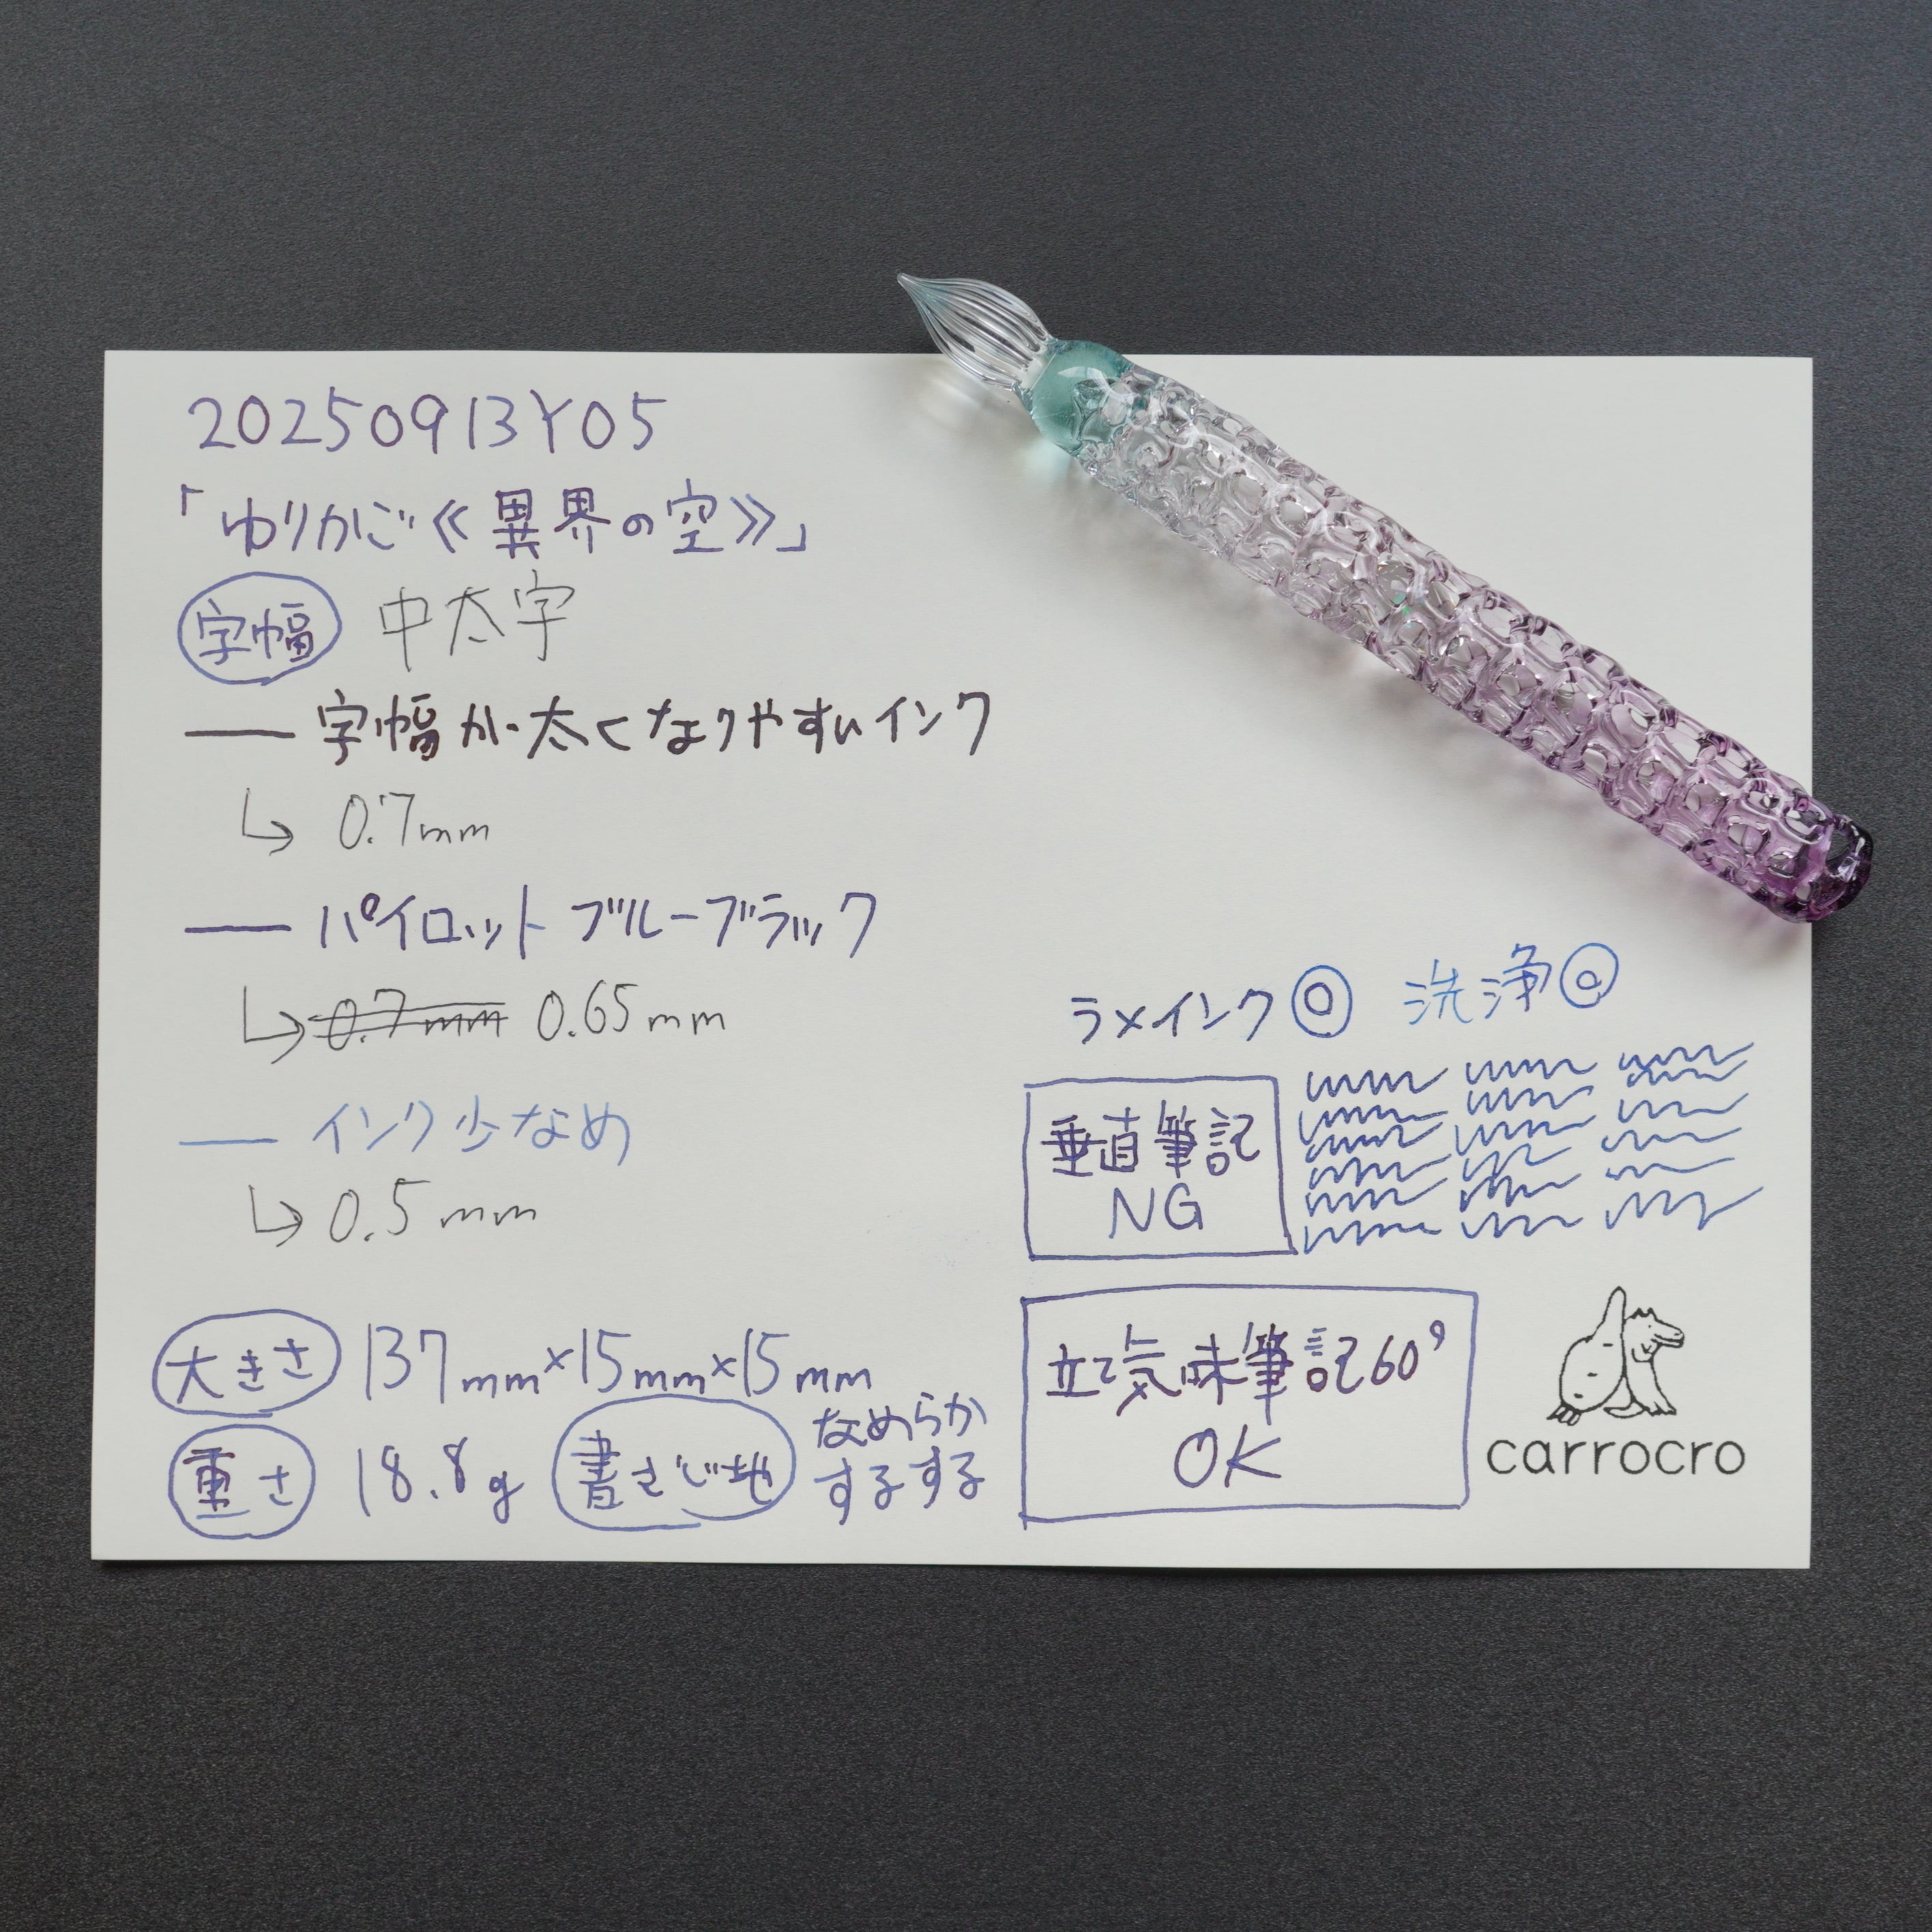 20250913Y05
「ゆりかご《異界の空》」
字幅 中太字
字幅が太くなりやすいインク
↳ 0.7mm
パイロット ブルーブラック
↳ 0.7mm 0.65mm
インク少なめ
↳ 0.5mm
大きさ 137mm×15mm×15mm
重さ 18.8g 書きごこ地 なめらか
するする
ラメインク◎ 洗浄◎
垂直筆記
NG
立て気味筆記60°
OK
carrocro